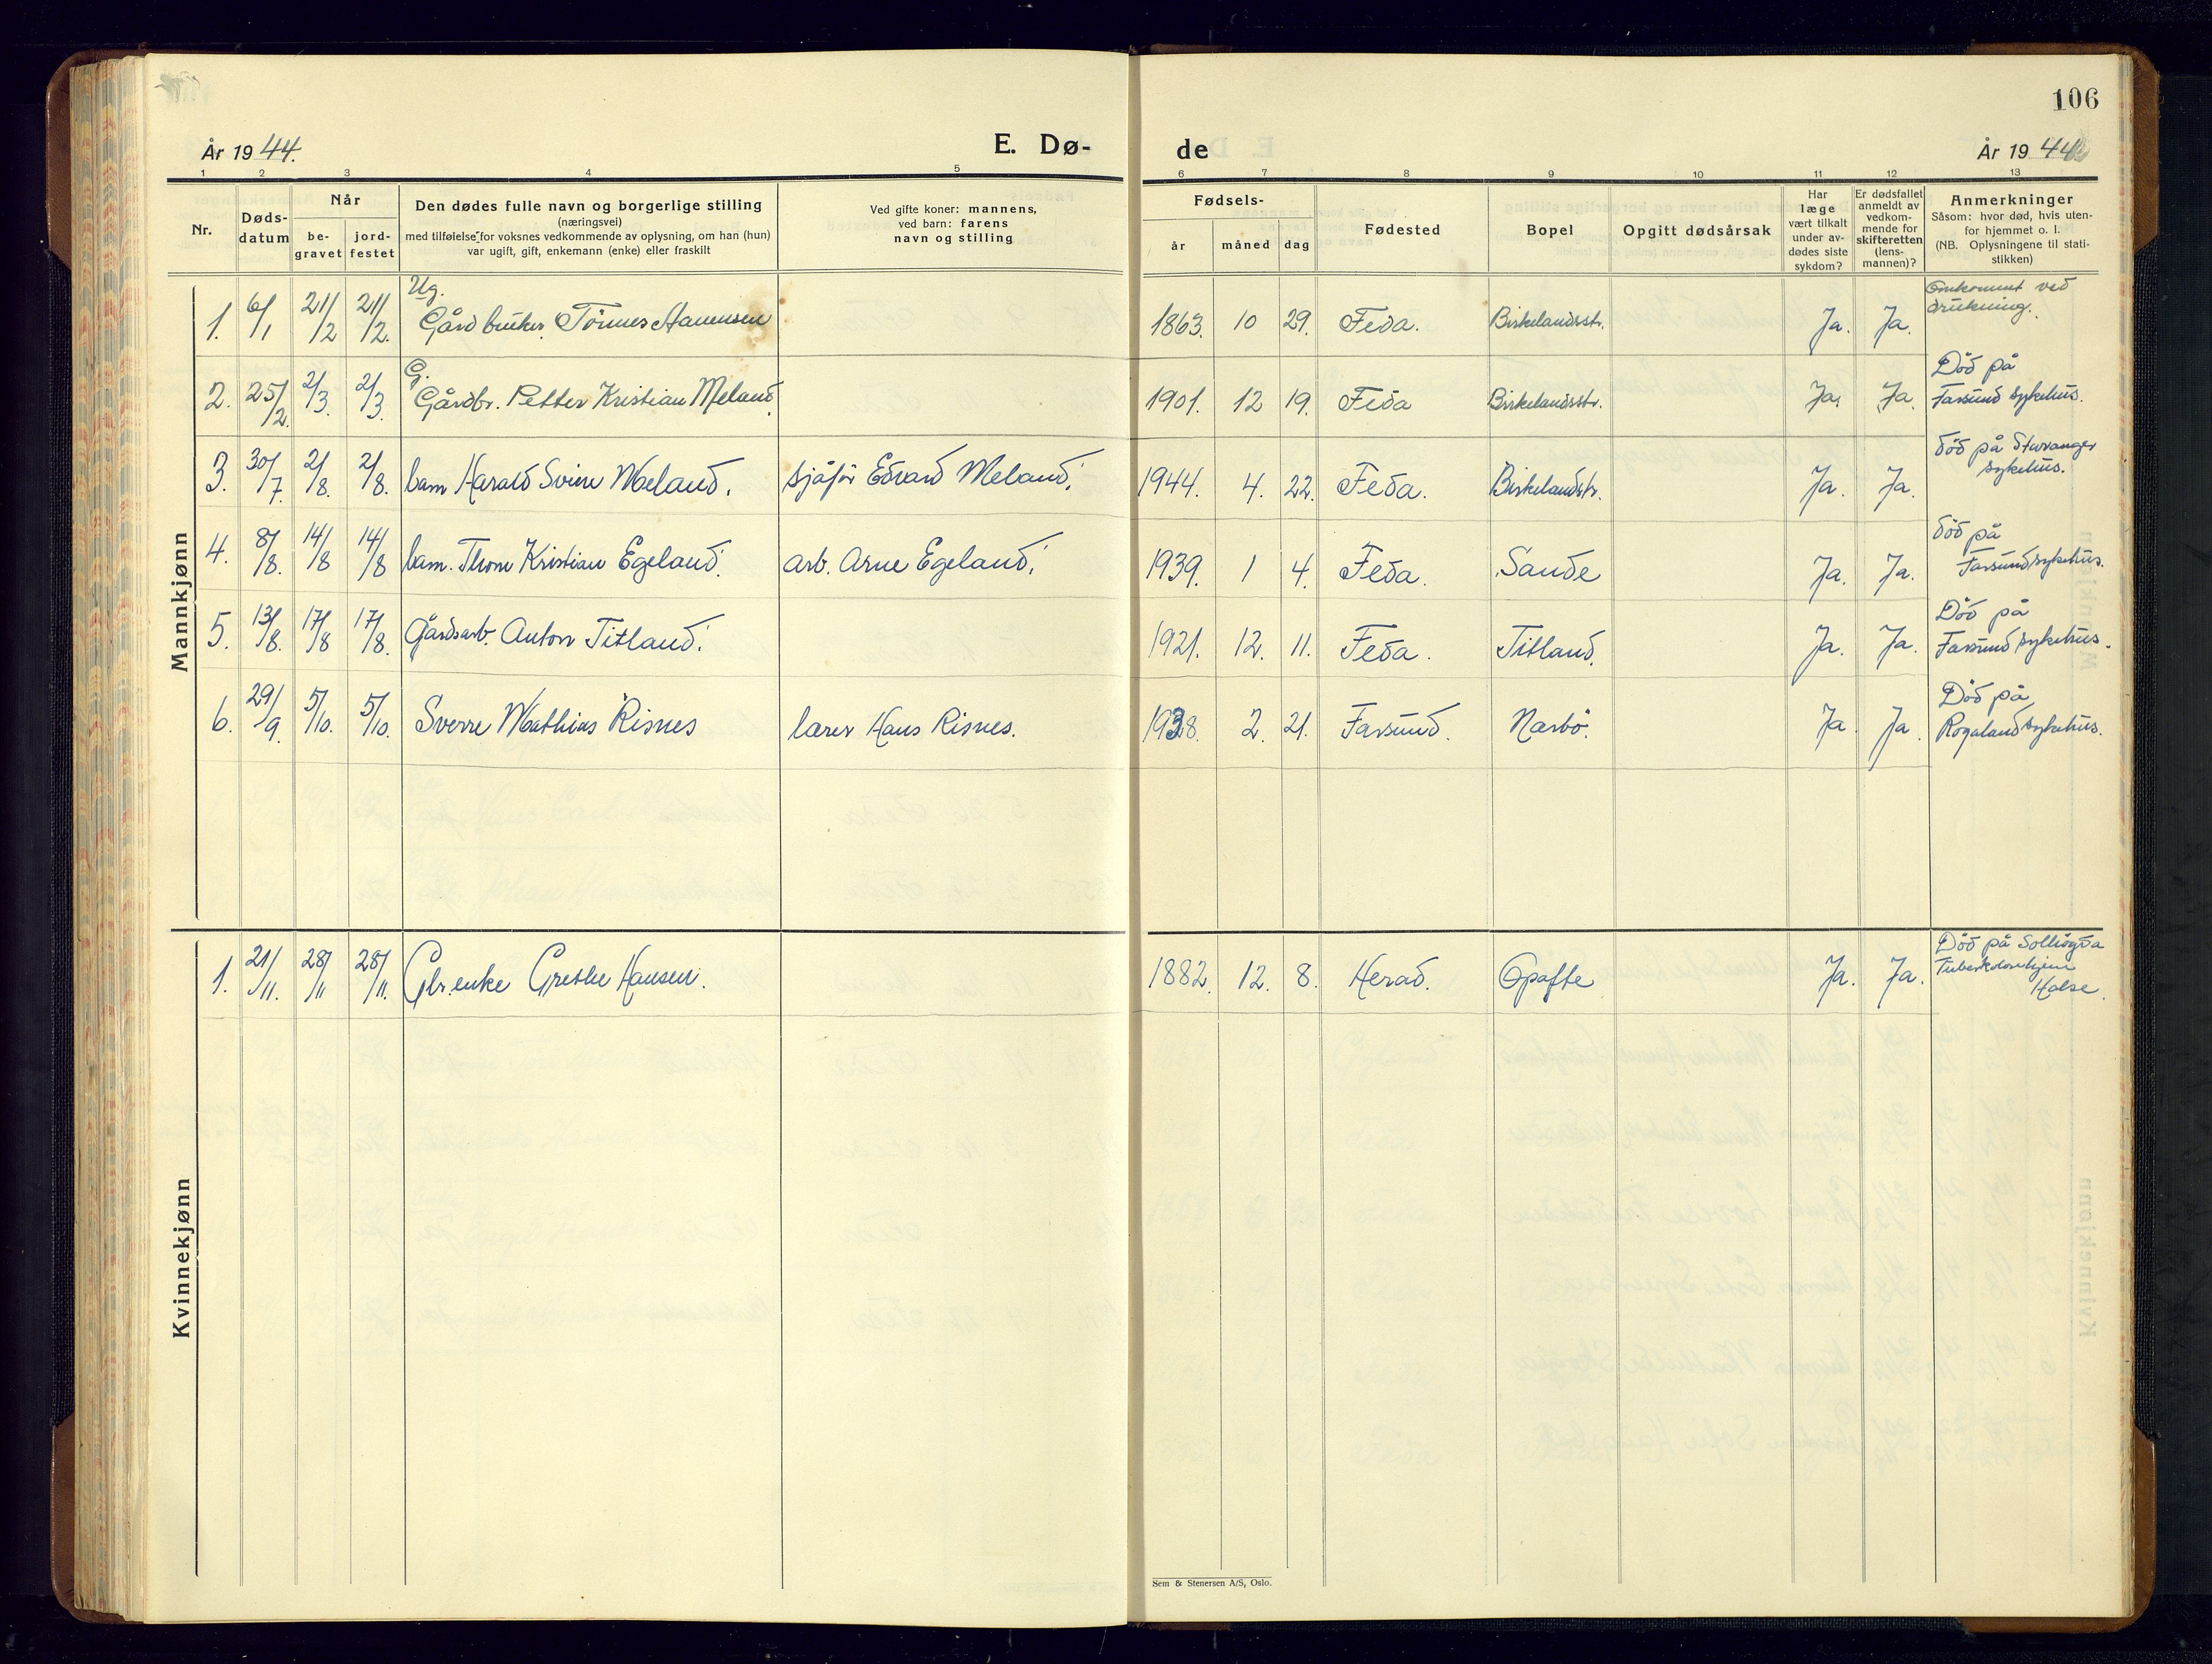 106
År 1944. E. Dø- de År 1944
1 2 3 4 5 6 7 8 9 10 11 12 13
Nr. Døds-datum Når be-gravet jord-festet Den dødes fulle navn og borgerlige stilling (næringsvei) med tilføielse for voksnes vedkommende av oplysning, om han (hun) var ugift, gift, enkemann (enke) eller fraskilt Ved gifte koner: mannens, ved barn: farens navn og stilling Fødsels- år måned dag Fødested Bopel Opgitt dødsårsak Har læge vært tilkalt under av-dødes siste sykdom? Er dødsfallet anmeldt av vedkom-mende for skifteretten (lens-mannen)? Anmerkninger Såsom: hvor død, hvis uten-for hjemmet o. l. (NB. Oplysningene til stati-stikken)
Mannkjønn
1. 6/1 21/2 21/2. Ug. Gårdbruker Tönnes 1863. 10 29. Feda. Birkelandsstr. Ja. Ja. Omkommt ved drukning.
2. 25/2. 2/3. 2/3. G. Gårdbr. Petter Kristian Meland 1901. 12 19. Feda Birkelandsstr. Ja. Ja. Död på Farsund sykehus.
3. 30/7. 2/8. 2/8. barn Harald Svein Meland. sjåför Edvard Meland. 1944. 4. 22. Feda. Birkelandstr. Ja. Ja. död på Stavanger sykehus.
4. 8/8. 14/8 14/8 barn. Thom Kristian Egeland. arb. Arne Egeland. 1939. 1 4. Feda. Sande Ja. Ja. död på Farsund sykehus.
5. 13/8. 17/8 17/8. Gårdsarb. Anton Titland. 1921. 12. 11. Feda. Titland. Ja. Ja. Död på Farsund sykehus.
6. 29/9. 5/10. 5/10. Sverre Mathias Risnes lærer Hans Risnes. 1938. 2. 21. Farsund. Narbö. Ja. Ja. Död på Rogaland sykehus.
Kvinnekjønn
1. 21/11. 28/11 28/11. Gbr.enke Grethe Hansen. 1882. 12. 8. Herad. Opofte Ja. Ja. Död på Solhögda Tuberkulosehjem Halse.
Sem & Stenersen A/S, Oslo.